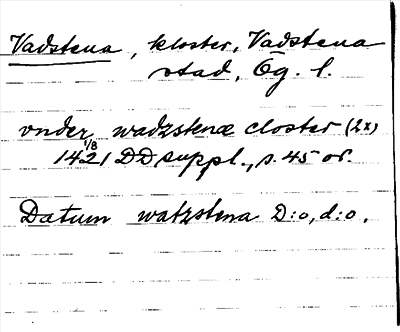 Vadstena, kloster, Vadstena
stad, Ög. l.
vnder wadzstenæ closter (2x)
1/8 1421 DD suppl., s. 45 or.
Datum watzstena D:o, d:o.